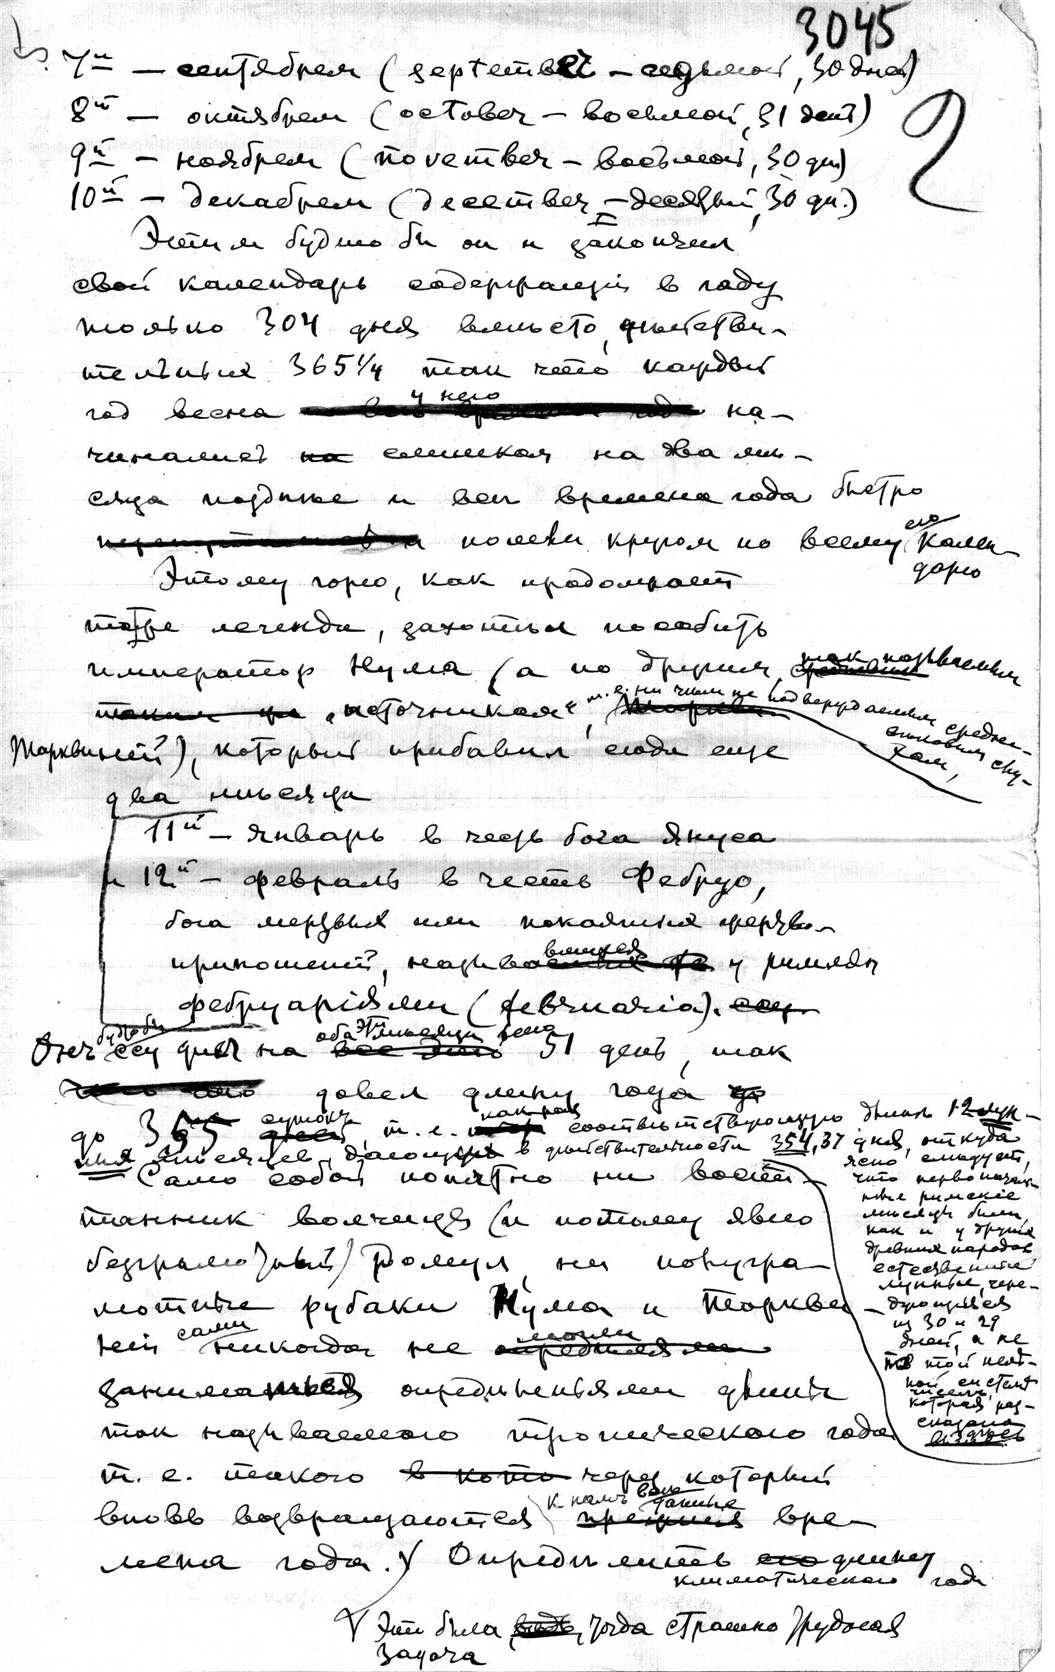 3045
2
7й — сентябрем (september — седьмой, 30 дней)
8й — октябрем (october — восьмой, 31 день)
9й — ноябрем (november — восьмой, 30 дн.)
10й — декабрем (december — десятый, 30 дн.)
Этим будто бы он и закончил
свой календарь содержащий в году
только 304 дня вместо действи-
тельных 365 1/4 так что каждый
год весна у него на-
чиналась слишком на два ме-
сяца позднее и все времена года быстро
пошли кругом по всему его кален-
дарю
Этому горю, как продолжает
та же легенда, захотел пособить
император Нума (а по другим, так называемым
„источникам“, т. е. ни чем не подверждаемым средне-
вековым слу-
хам,
Тарквиний), который прибавил сюда еще
два месяца
11й — январь в честь бога Януса
и 12й — февраль в честь Фебруо,
бога мертвых или покаяния жертво-
приношений, называвшихся у римлян
фебруаріями (februaria).
Он будто бы дал на оба эти месяца всего 51 день, так
довел длину года
до 365 суток, т. е. как раз соответствующую двенад. 12 лун-
ных месяцев, дающих в действительности 354,37 дня, откуда
ясно следует,
что первоначаль-
ные римские
месяцы были,
как и у других
древних народов
естественные
лунные, чере-
дующиеся
из 30 и 29
дней, а не
в той нелеп-
ной системе
чисел,
которая рас-
сказана
здесь
Само собой понятно ни воспи-
танник волчицы (и потому явно
безграмотный) Ромул, ни полугра-
мотные рубаки Нума и Таркви-
ний сами никогда не могли
заниматься определеньями длины
так называемого тропического года
т. е. такого через который
вновь возвращаются к нам все данные вре-
мена года. V Определить длину
климатического года
V Эти была тогда страшно трудная
задача